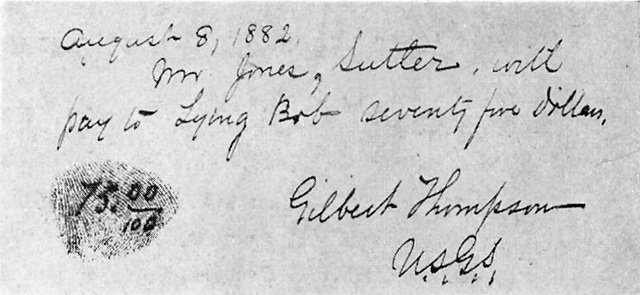 August 8, 1882.
Mr Jones, Sutler, will
pay to Lying Bob seventy five dollars.
75.00/100
Gilbert Thompson
U.S.G.S.